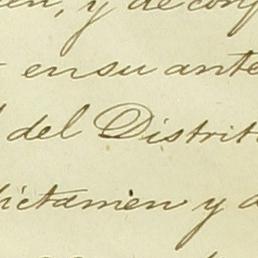 y de conf
en su ante
del Distrito
dictamen y a